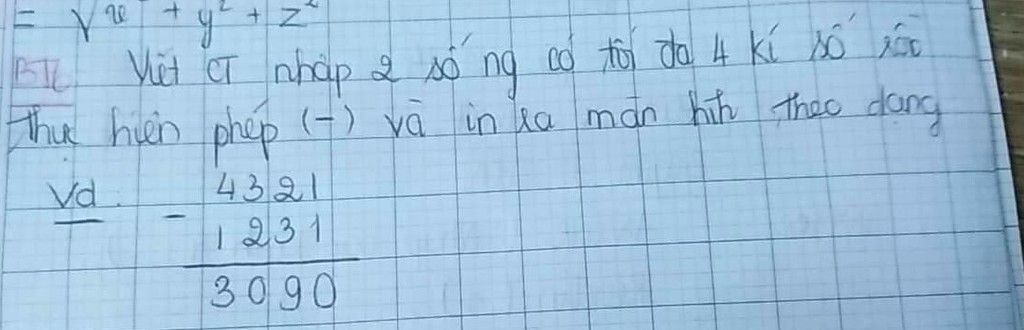 = √x² + y² + z²
Viết CT nhập 2 số ng có tối đa 4 kí số rồi
Thực hiện phép (-) và in ra màn hình theo dạng
Vd: 4321
- 1231
3090